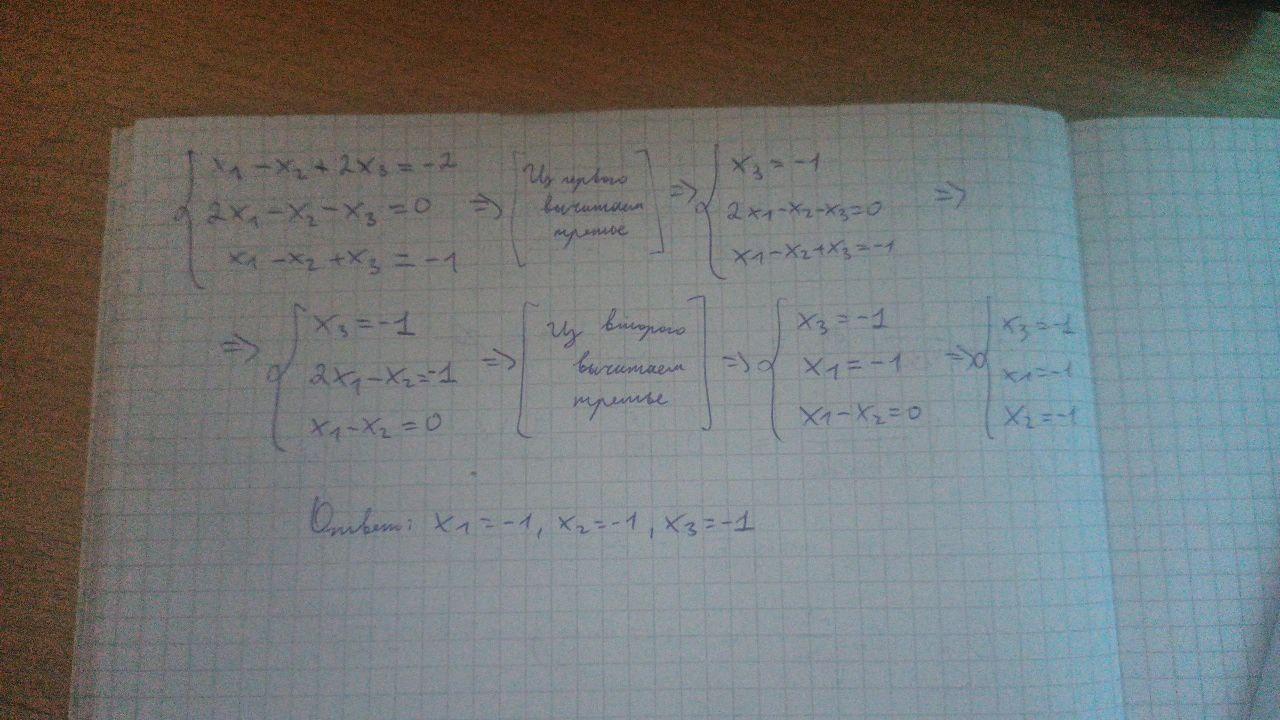 x₁ - x₂ + 2x₃ = -2
2x₁ - x₂ - x₃ = 0
x₁ - x₂ + x₃ = -1
=>
Из первого
вычитаем
третье
=>
x₃ = -1
2x₁ - x₂ - x₃ = 0
x₁ - x₂ + x₃ = -1
=>
=>
x₃ = -1
2x₁ - x₂ = -1
x₁ - x₂ = 0
=>
Из второго
вычитаем
третье
=>
x₃ = -1
x₁ = -1
x₁ - x₂ = 0
=>
x₃ = -1
x₁ = -1
x₂ = -1
Ответ: x₁ = -1, x₂ = -1, x₃ = -1